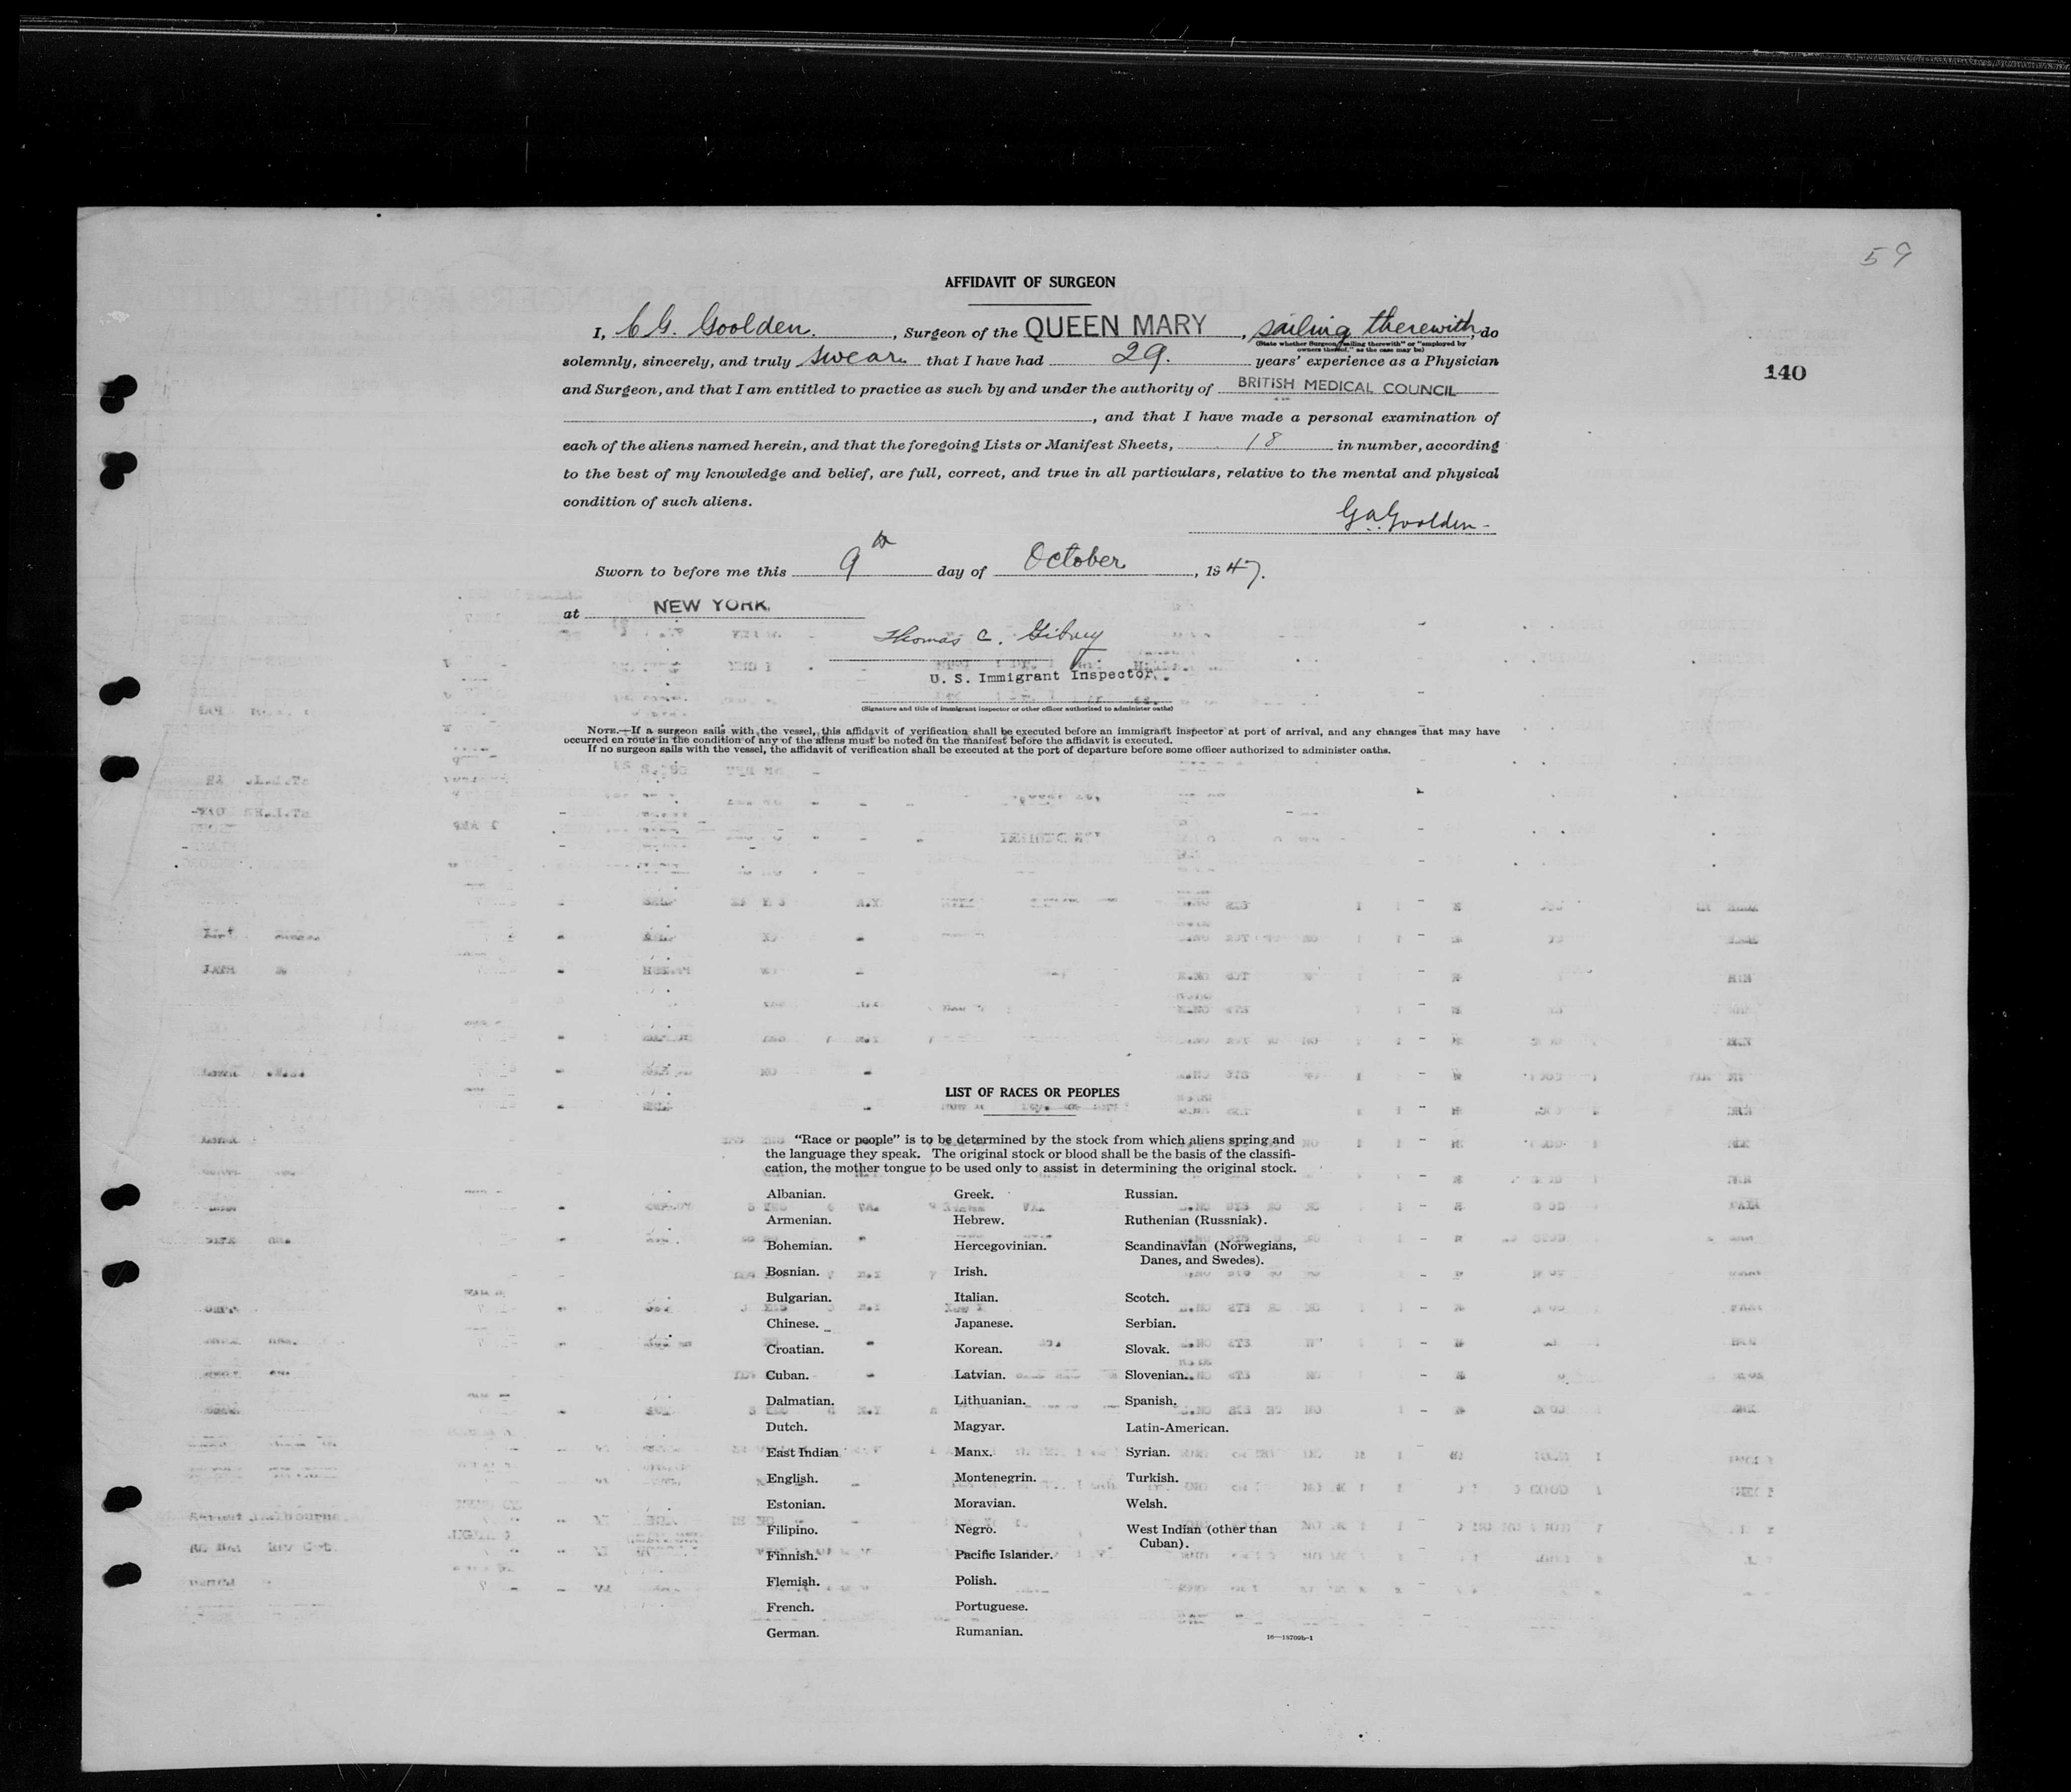 59
AFFIDAVIT OF SURGEON
I, C G. Goolden. , Surgeon of the QUEEN MARY , sailing therewith, do
(State whether Surgeon "sailing therewith" or "employed by
owners thereof," as the case may be)
solemnly, sincerely, and truly swear that I have had 29. years' experience as a Physician
140
and Surgeon, and that I am entitled to practice as such by and under the authority of BRITISH MEDICAL COUNCIL
, and that I have made a personal examination of
each of the aliens named herein, and that the foregoing Lists or Manifest Sheets, 18 in number, according
to the best of my knowledge and belief, are full, correct, and true in all particulars, relative to the mental and physical
condition of such aliens.
Goolden
Sworn to before me this 9th day of October , 1947.
at NEW YORK
Thomas C. Gibney
U. S. Immigrant Inspector.
(Signature and title of immigrant inspector or other officer authorized to administer oaths)
NOTE.—If a surgeon sails with the vessel, this affidavit of verification shall be executed before an immigrant inspector at port of arrival, and any changes that may have
occurred en route in the condition of any of the aliens must be noted on the manifest before the affidavit is executed.
If no surgeon sails with the vessel, the affidavit of verification shall be executed at the port of departure before some officer authorized to administer oaths.
LIST OF RACES OR PEOPLES
"Race or people" is to be determined by the stock from which aliens spring and
the language they speak. The original stock or blood shall be the basis of the classifi-
cation, the mother tongue to be used only to assist in determining the original stock.
Albanian.
Armenian.
Bohemian.
Bosnian.
Bulgarian.
Chinese.
Croatian.
Cuban.
Dalmatian.
Dutch.
East Indian
English.
Estonian.
Filipino.
Finnish.
Flemish.
French.
German.
Greek.
Hebrew.
Hercegovinian.
Irish.
Italian.
Japanese.
Korean.
Latvian.
Lithuanian.
Magyar.
Manx.
Montenegrin.
Moravian.
Negro.
Pacific Islander.
Polish.
Portuguese.
Rumanian.
Russian.
Ruthenian (Russniak).
Scandinavian (Norwegians,
Danes, and Swedes).
Scotch.
Serbian.
Slovak.
Slovenian.
Spanish.
Latin-American.
Syrian.
Turkish.
Welsh.
West Indian (other than
Cuban).
16—18709b-1